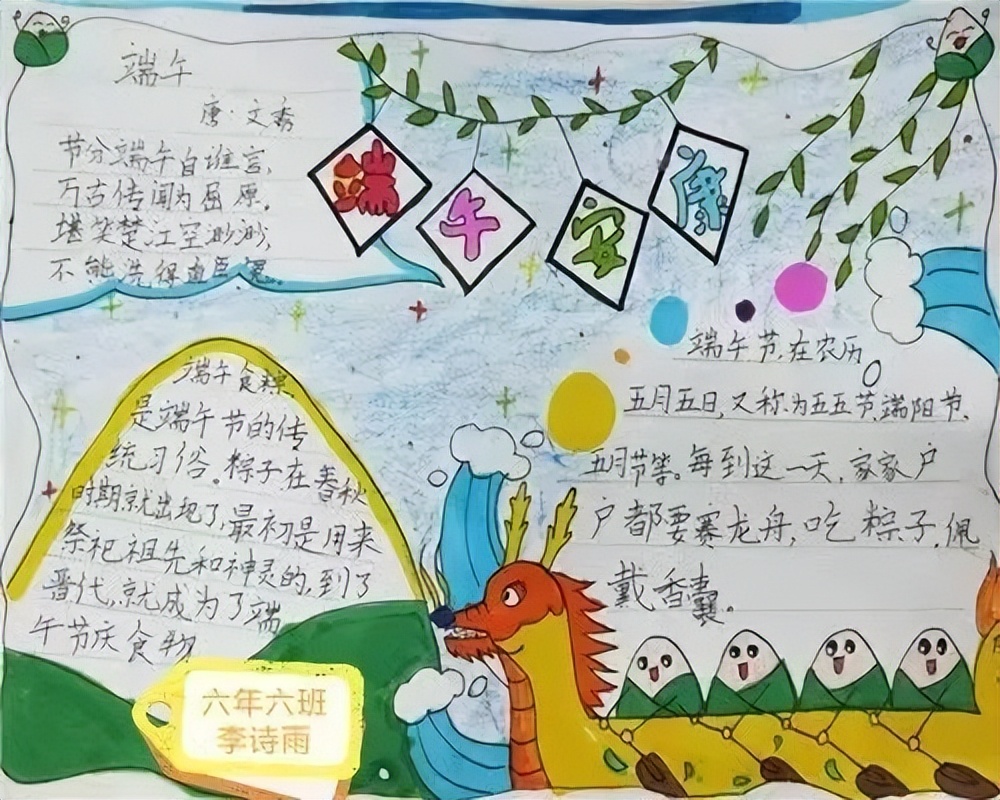 端午
唐·文秀
节分端午自谁言,
万古传闻为屈原。
堪笑楚江空渺渺,
不能洗得直臣冤。
端午安康
端午食粽
是端午节的传
统习俗。粽子在春秋
时期就出现了,最初是用来
祭祀祖先和神灵的,到了
晋代,就成为了端
午节庆食物
端午节,在农历
五月五日,又称为五五节,端阳节、
五月节等。每到这一天,家家户
户都要赛龙舟,吃粽子,佩
戴香囊。
六年六班
李诗雨